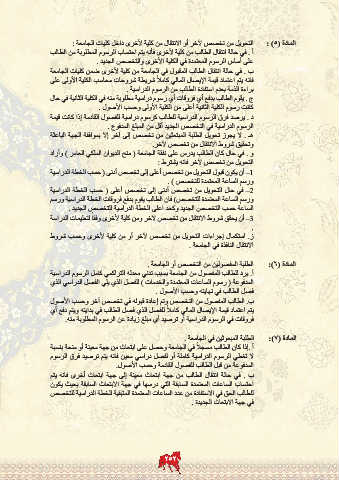 المادة (٥) : التحويل من تخصص لآخر أو الانتقال من كلية لأخرى داخل كليات الجامعة :
أ . في حالة انتقال الطالب من كلية لأخرى فأنه يتم احتساب الرسوم المطلوبة من الطالب
على أساس الرسوم المعتمدة في الكلية الأخرى والتخصص الجديد .
ب . في حالة انتقال الطالب المقبول في الجامعة من كلية لأخرى ضمن كليات الجامعة
فانه يتم اعتماد قيمة الإيصال المالي كاملاً شريطة شروحات محاسب الكلية الأولى على
براءة الذمة بعدم استفادة الطالب من الرسوم الدراسية .
ج . يلزم الطالب بدفع أي فروقات أي رسوم دراسية مطلوبة منه في الكلية الثانية في حال
كانت رسوم الكلية الثانية أعلى من الكلية الأولى وحسب الأصول .
د . يرصد فرق الرسوم الدراسية للطالب كرسوم دراسية للفصول القادمة إذا كانت قيمة
الرسوم الدراسية في التخصص الجديد أقل من المبلغ المدفوع .
هـ . لا يجوز تحويل الطلبة المبتعثين من تخصص إلى آخر إلا بموافقة الجهة الباعثة
وتحقيق شروط الانتقال من تخصص لآخر .
و . في حال كان الطالب يدرس على نفقة الجامعة ( منح الديوان الملكي العامر ) وأراد
التحويل من تخصص لآخر فانه يشترط :
1- أن يكون قبول التحويل من تخصص أعلى إلى تخصص أدنى ( حسب الخطة الدراسية
ورسم الساعة المعتمدة للتخصص ) .
2- في حال التحويل من تخصص أدنى إلى تخصص أعلى ( حسب الخطة الدراسية
ورسم الساعة المعتمدة للتخصص) فان الطالب يقوم بدفع فروقات الخطة الدراسية ورسم
الساعة حسب التخصص الجديد وكحد أعلى الخطة الدراسية للتخصص الجديد .
3- أن يحقق شروط الانتقال من تخصص لآخر ومن كلية لأخرى وفقا لتعليمات الدراسة
.
ز. استكمال إجراءات التحويل من تخصص لآخر أو من كلية لأخرى وحسب شروط
الانتقال النافذة في الجامعة .
المادة (٦): الطلبة المفصولين من التخصص أو الجامعة .
أ. يرد للطالب المفصول من الجامعة بسبب تدني معدله التراكمي كامل الرسوم الدراسية
المدفوعة ( رسوم الساعات المعتمدة والخدمات ) للفصل الذي يلي الفصل الدراسي الذي
فصل الطالب في نهايته وحسب الأصول .
ب. الطالب المفصول من التخصص وتم إعادة قبوله في تخصص آخر وحسب الأصول
يتم اعتماد قيمة الإيصال المالي كاملاً للفصل الذي فصل الطالب في بدايته ويتم دفع أي
فروقات في الرسوم الدراسية أو ترصيد أي مبلغ زيادة عن الرسوم المطلوبة منه.
المادة (٧): الطلبة المبعوثين في الجامعة :
أ. إذا كان الطالب مسجلاً في الجامعة وحصل على ابتعاث من جهة معينة أو منحة بنسبة
لا تغطي الرسوم الدراسية كاملة أو لفصل دراسي معين فانه يتم ترصيد فرق الرسوم
المدفوعة من قبل الطالب لفصول القادمة وحسب الأصول.
ب . في حالة انتقال الطالب من جهة ابتعاث معينة إلى جهة ابتعاث أخرى فانه يتم
احتساب الساعات المعتمدة السابقة التي درسها في جهة الابتعاث السابقة بحيث يكون
للطالب الحق في الاستفادة من عدد الساعات المعتمدة المتبقية للخطة الدراسية للتخصص
في جهة الابتعاث الجديدة .